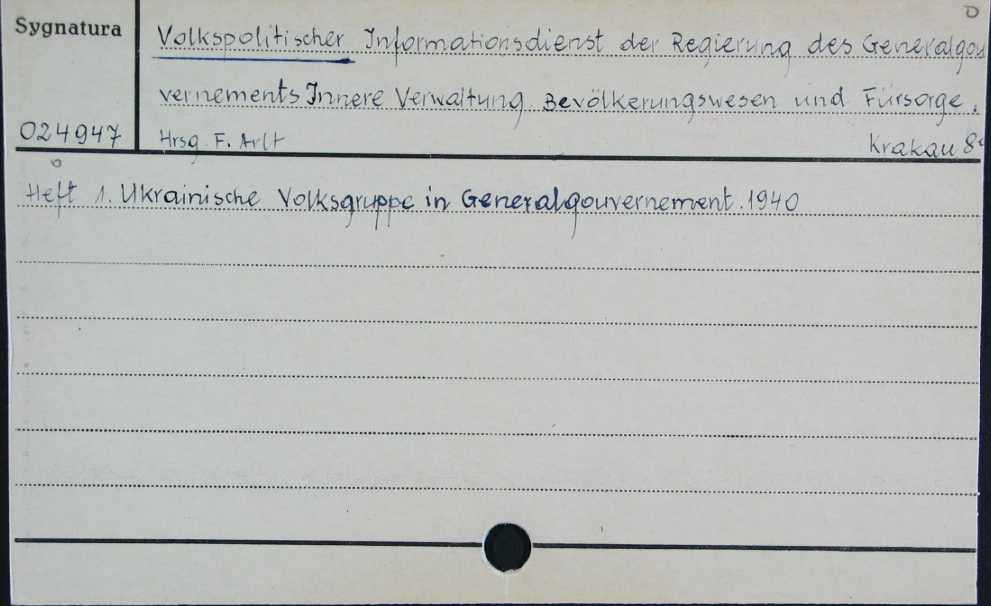 Sygnatura
Volkspolitischer Informationsdienst der Regierung des Generalgou
vernements Innere Verwaltung Bevölkerungswesen und Fürsorge.
024947 Hrsg F. Arlt Krakau 8°
Heft 1. Ukrainische Volksgruppe in Generalgouvernement. 1940